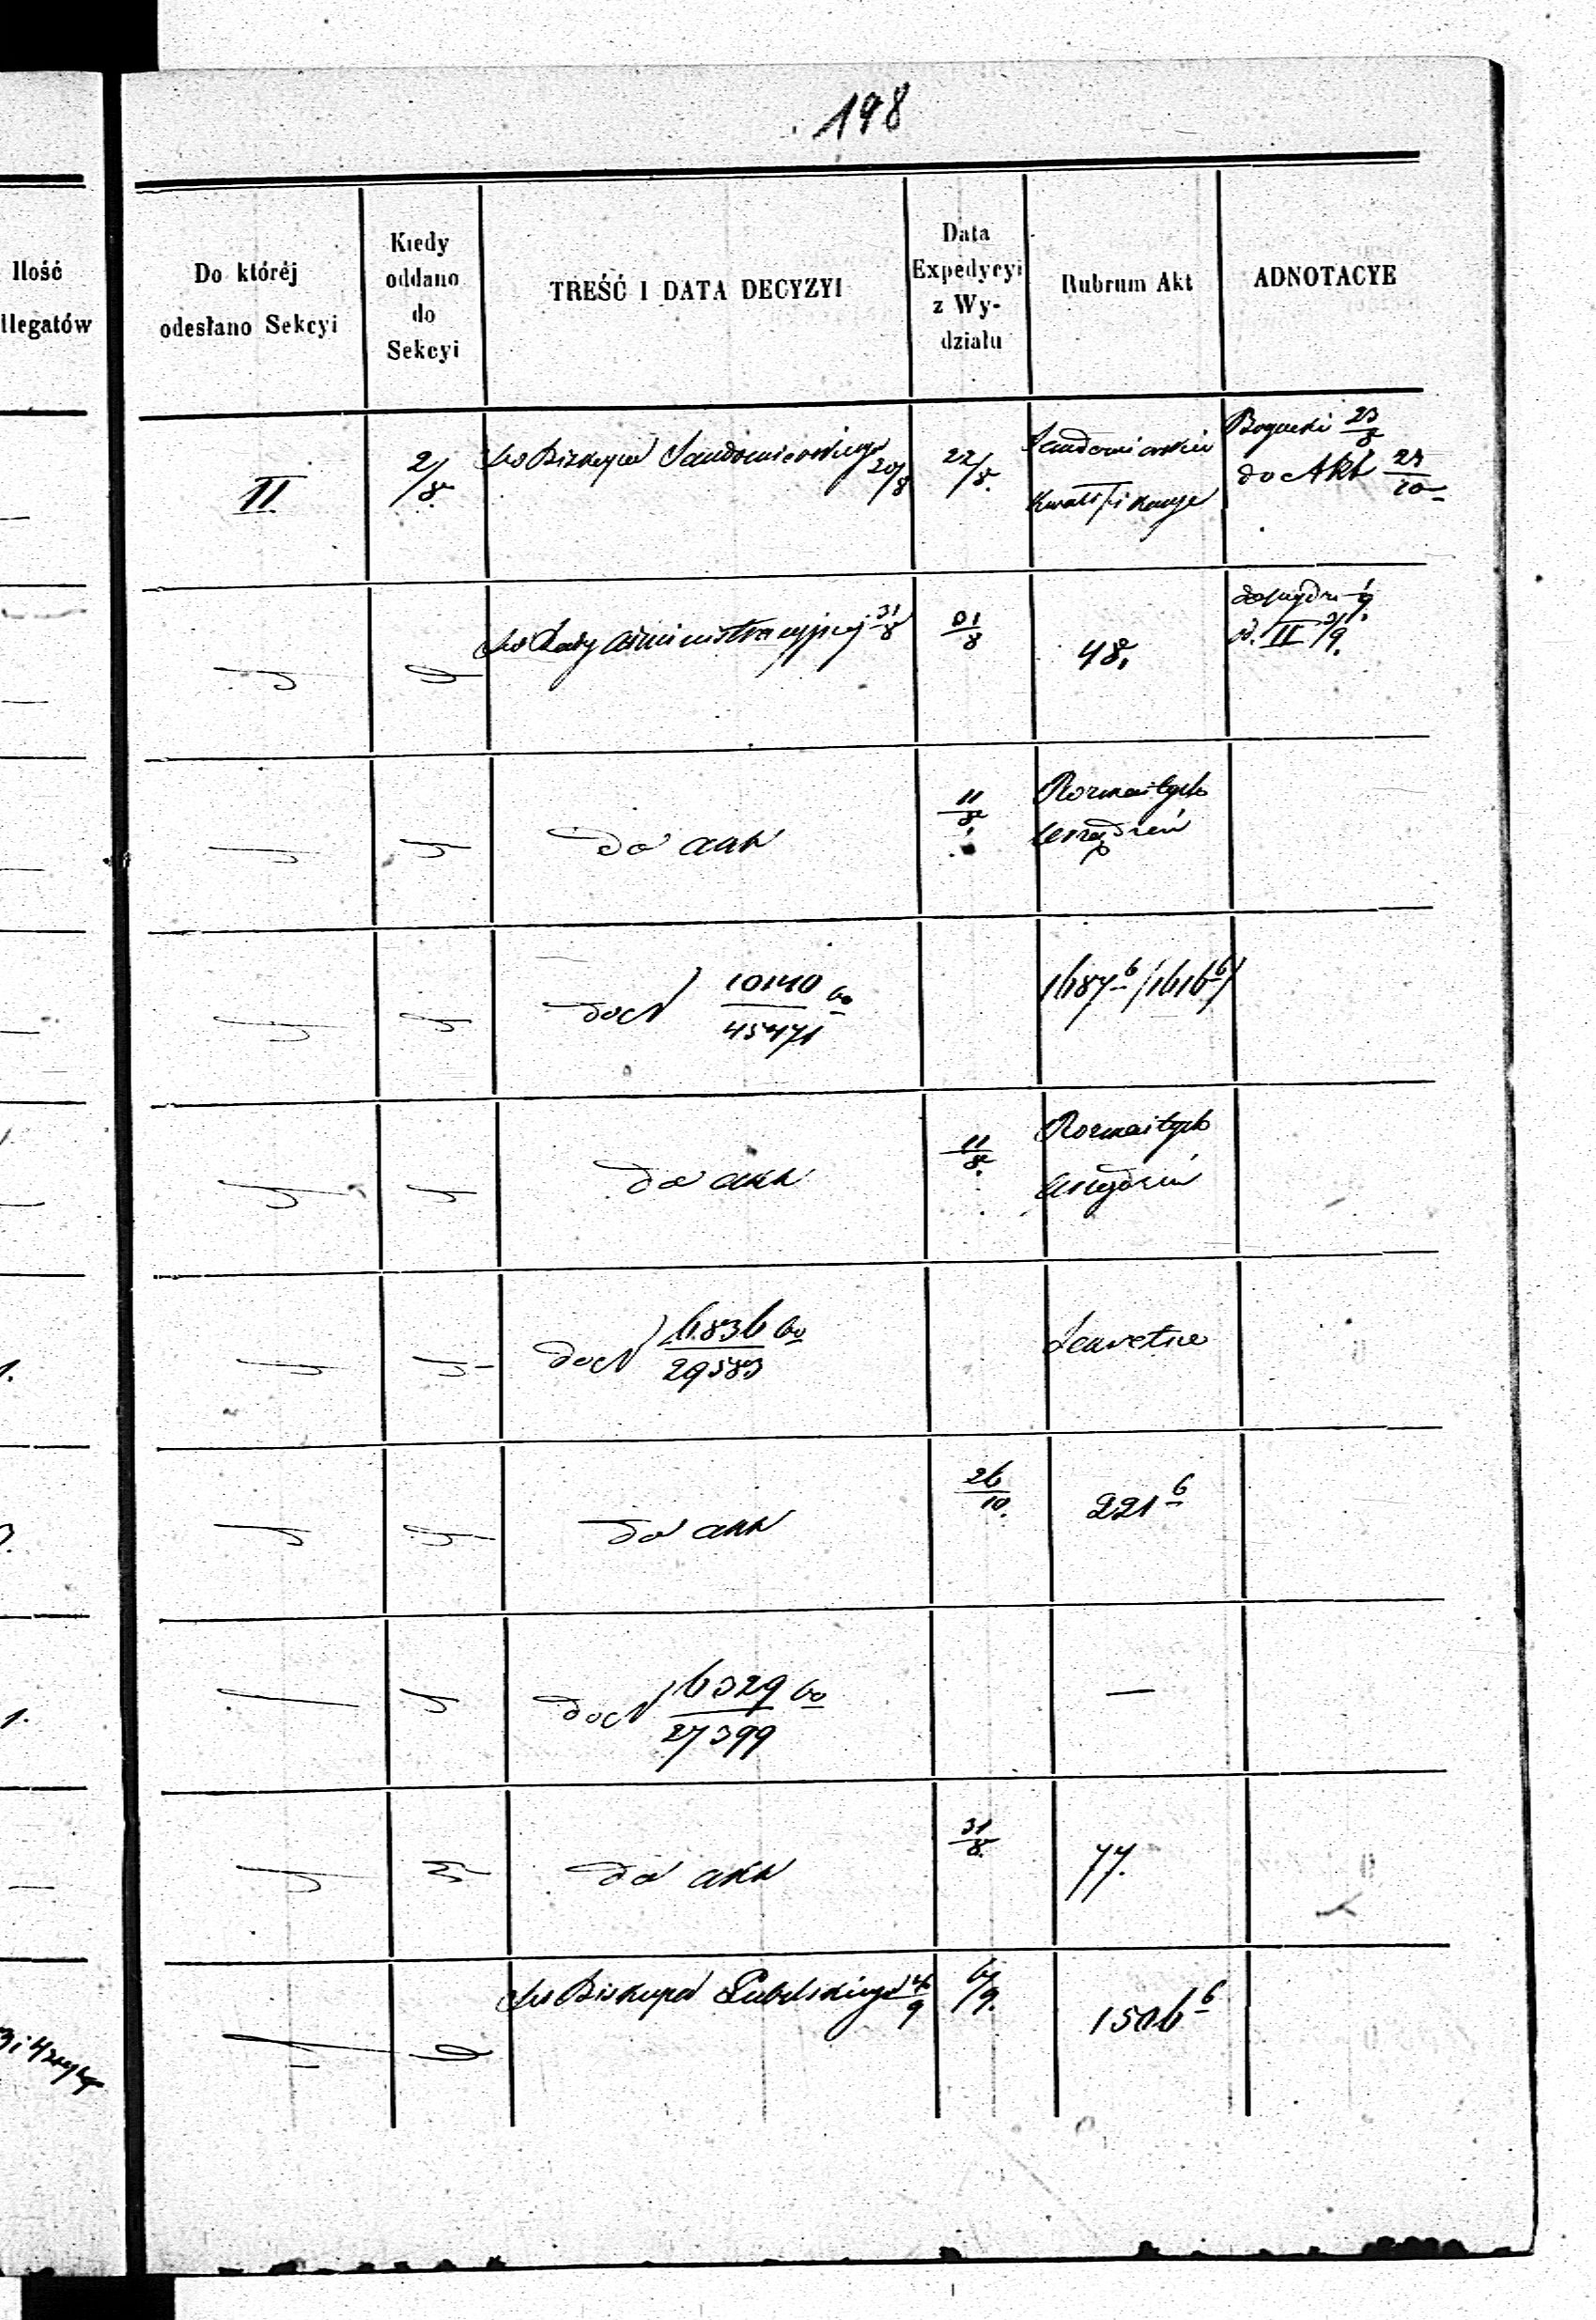 198
Ilość
llegatów
Do któréj
odesłano Sekcyi
Kiedy
oddano
do
Sekcyi
TREŚĆ I DATA DECYZYI
Data
Expedycyi
z Wy-
działu
Rubrum Akt
ADNOTACYE
II.
2/8.
Do Biskupa Sandomierskiego 20/8
22/8.
Sandomierskie
Kwalifikacye
Bogucki 23/8
do Akt 23/10
Do Rady Administracyjnej 31/8
31/8
48.
II 9/9.
do akt
11/8
Rozmaitych
Urządzeń
do N 10140/45471
1687 6 /1616 6/
do akt
11/8.
Rozmaitych
Urządzeń
1.
do N 6836/29583
do akt
26/10.
221 6
1.
do N 6329/27399
—
do akt
31/8.
77.
Do Biskupa Lubelskiego 4/9
6/9.
1506 6